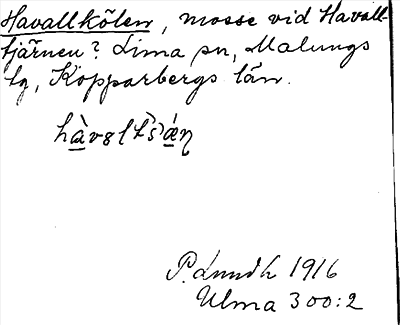 Havallkölen, mosse vid Havall-
tjärnen? Lima sn, Malungs
tg, Kopparbergs län.
P. Lundh 1916
Ulma 300:2